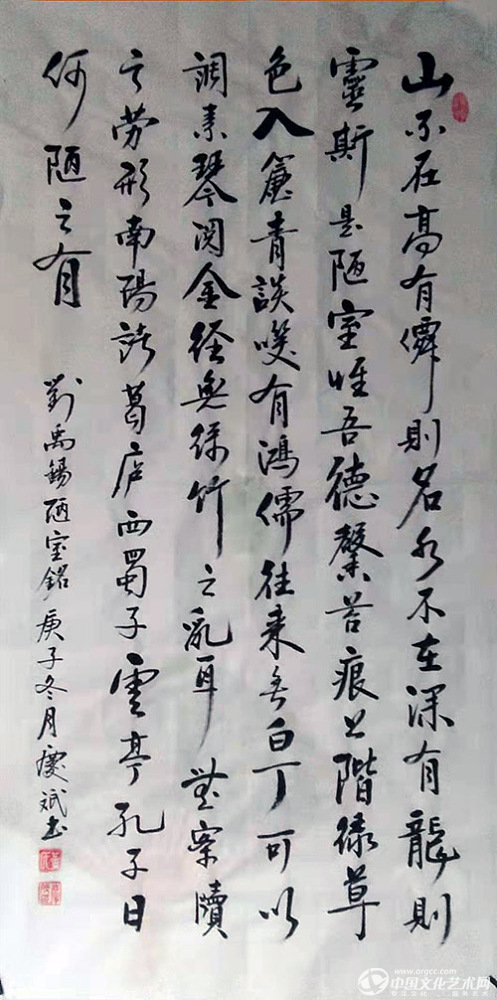 山不在高有僊則名水不在深有龍則
靈斯是陋室惟吾德馨苔痕上階緑草
色入簾青談笑有鴻儒往来无白丁可以
調素琴阅金経無丝竹之亂耳無案牘
之劳形南陽諸葛庐西蜀子雲亭孔子曰
何陋之有
劉禹錫陋室銘庚子冬月慶斌书
www.orgcc.com
中国文化艺术网